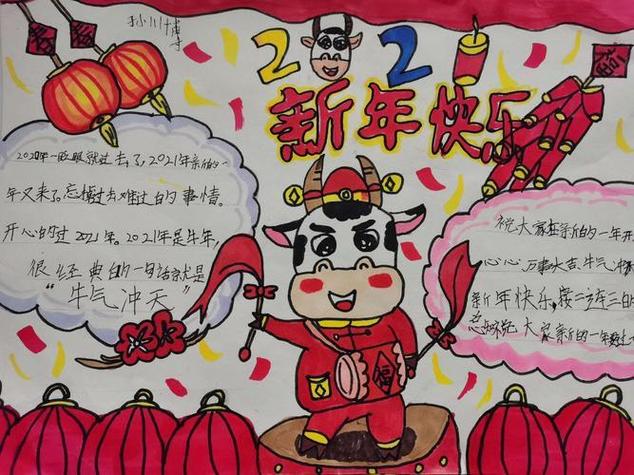 孙川博
2021
新年快乐
2020年一眨眼就过去了,2021年新的一
年又来了,忘掉过去难过的事情。
开心的过2021年。2021年是牛年,
很经典的一句话就是
“牛气冲天”
祝大家在新的一年开
心心,万事大吉,牛气冲
新年快乐,接二连三的
大家新的一年
福